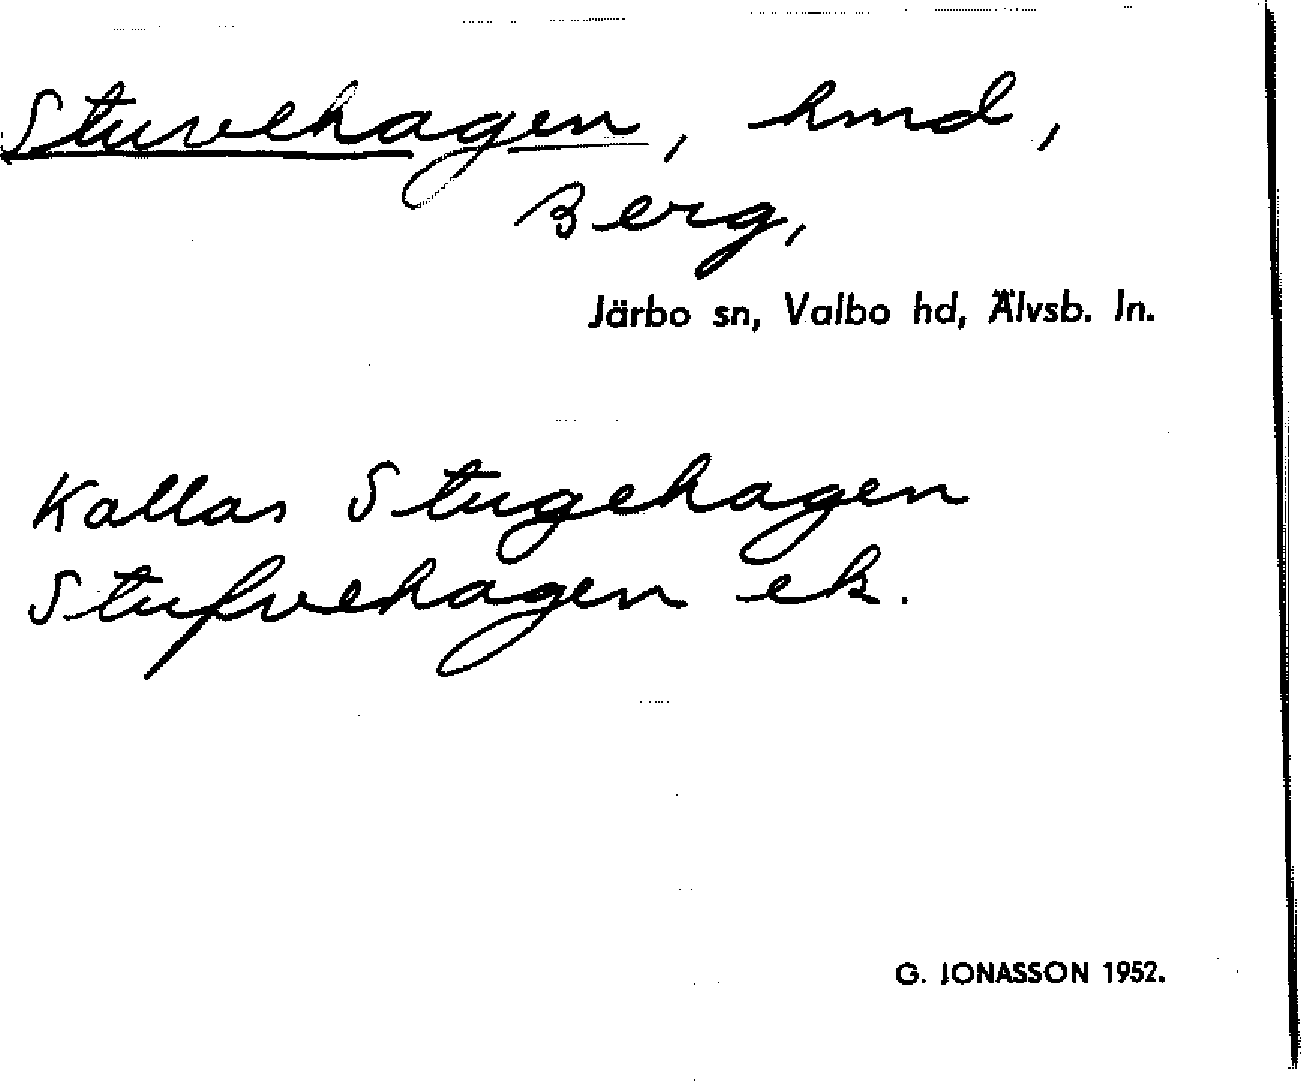 Stuvehagen, hmd,
Berg,
Järbo sn, Valbo hd, Älvsb. ln.
Kallas Stugehagen
Stufvehagen ek.
G. JONASSON 1952.